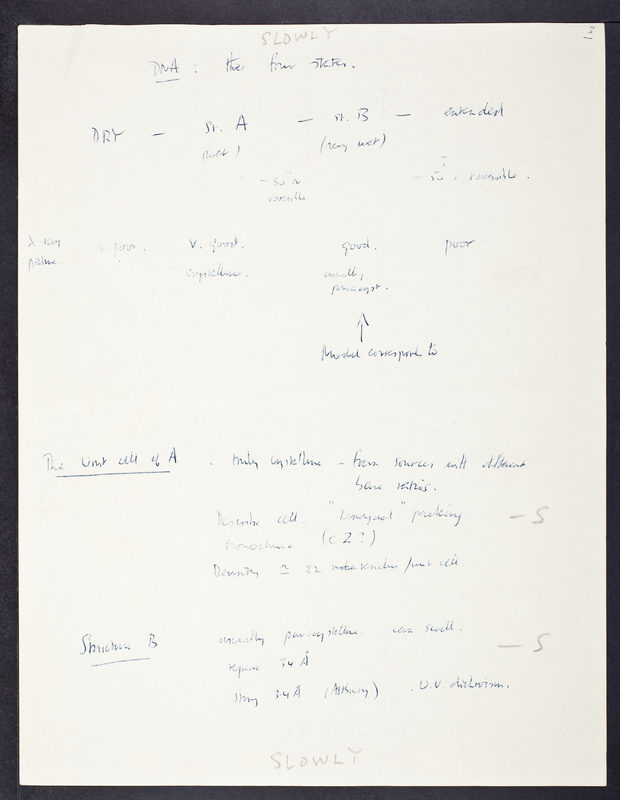 SLOWLY
3
DNA : the four states.
DRY — St. A — st. B — extended
(wet) (very wet)
~ 30% reversible
~ 50% reversible.
X-ray picture. v. poor. v. good. good. poor
crystalline. usually paracryst.
↑
Model corresponds to
The Unit cell of A : truly crystalline - from sources with different
base ratios.
Describe cell. "Hexagonal" packing. — S
Monoclinic (C2?)
Density ≃ 22 nucleotides/unit cell.
Structure B usually paracrystalline. can swell. — S
repeat 34 Å
Strong 3.4 Å (Astbury) . U.V. dichroism.
SLOWLY